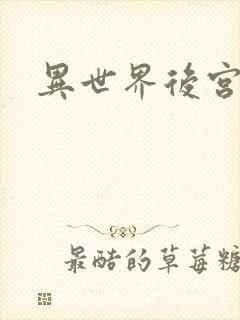 異世界後宮
最酷的草莓糖